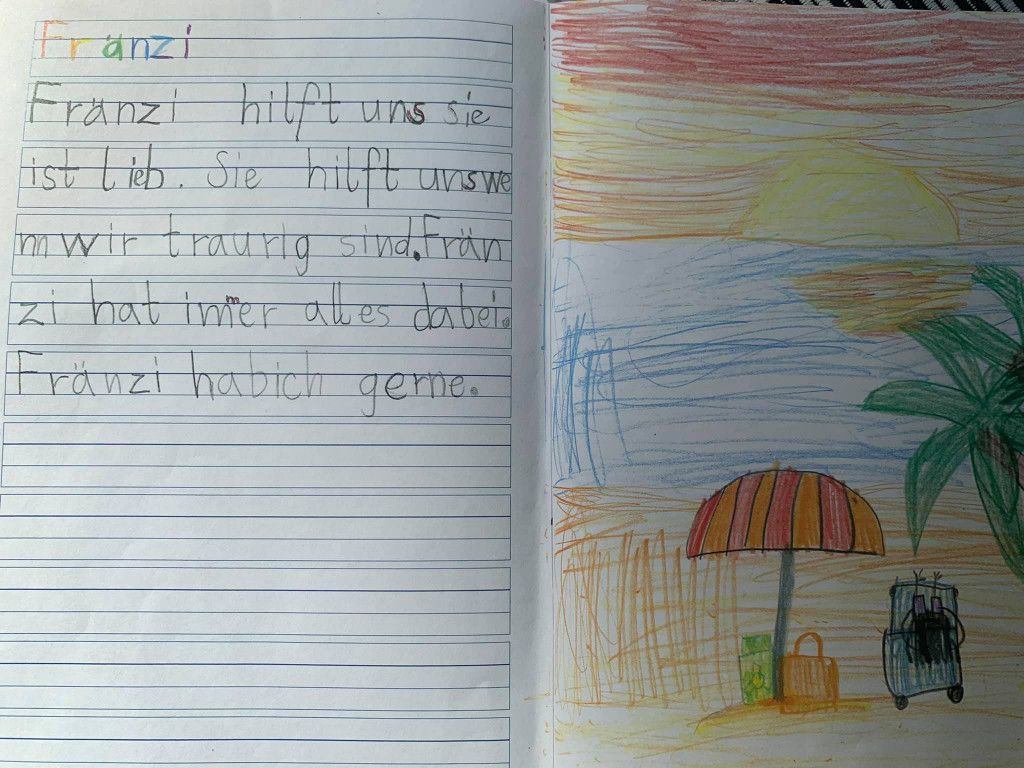 Fränzi
Fränzi hilft uns sie
ist lieb. Sie hilft uns we
nn wir traurig sind. Frän
zi hat immer alles dabei.
Fränzi hab ich gerne.